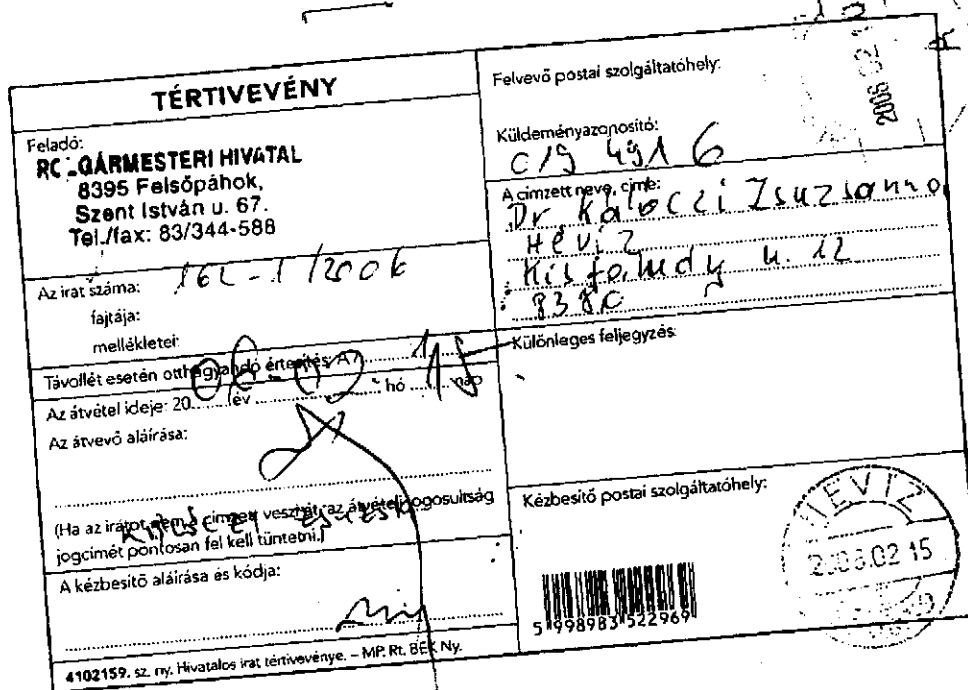 TÉRTIVEVÉNY
Feladó:
GÁRMESTERI HIVATAL
8395 Felsőpáhok,
Szent István u. 67.
Tel./fax: 83/344-588
Az irat száma: 162-1/2006
fajtája:
mellékletei:
Távollét esetén otthagyandó értesítés: A7. 1
Az átvétel ideje: 20 06 év 02 hó 15 nap
Az átvevő aláírása:
(Ha az iratot nem a címzett veszi át, az átvételi jogosultság
jogcímét pontosan fel kell tüntetni.)
A kézbesítő aláírása és kódja:
4102159. sz. ny. Hivatalos irat tértivevénye. – MP. Rt. BEK Ny.
Felvevő postai szolgáltatóhely:
Küldeményazonosító:
C/9 4916
A címzett neve, címe:
Dr Kálóczi Zsuzsanna
Hévíz
Kisfaludy u. 12
8380
Különleges feljegyzés:
Kézbesítő postai szolgáltatóhely:
HÉVÍZ
2006.02 15
5 998983 522969